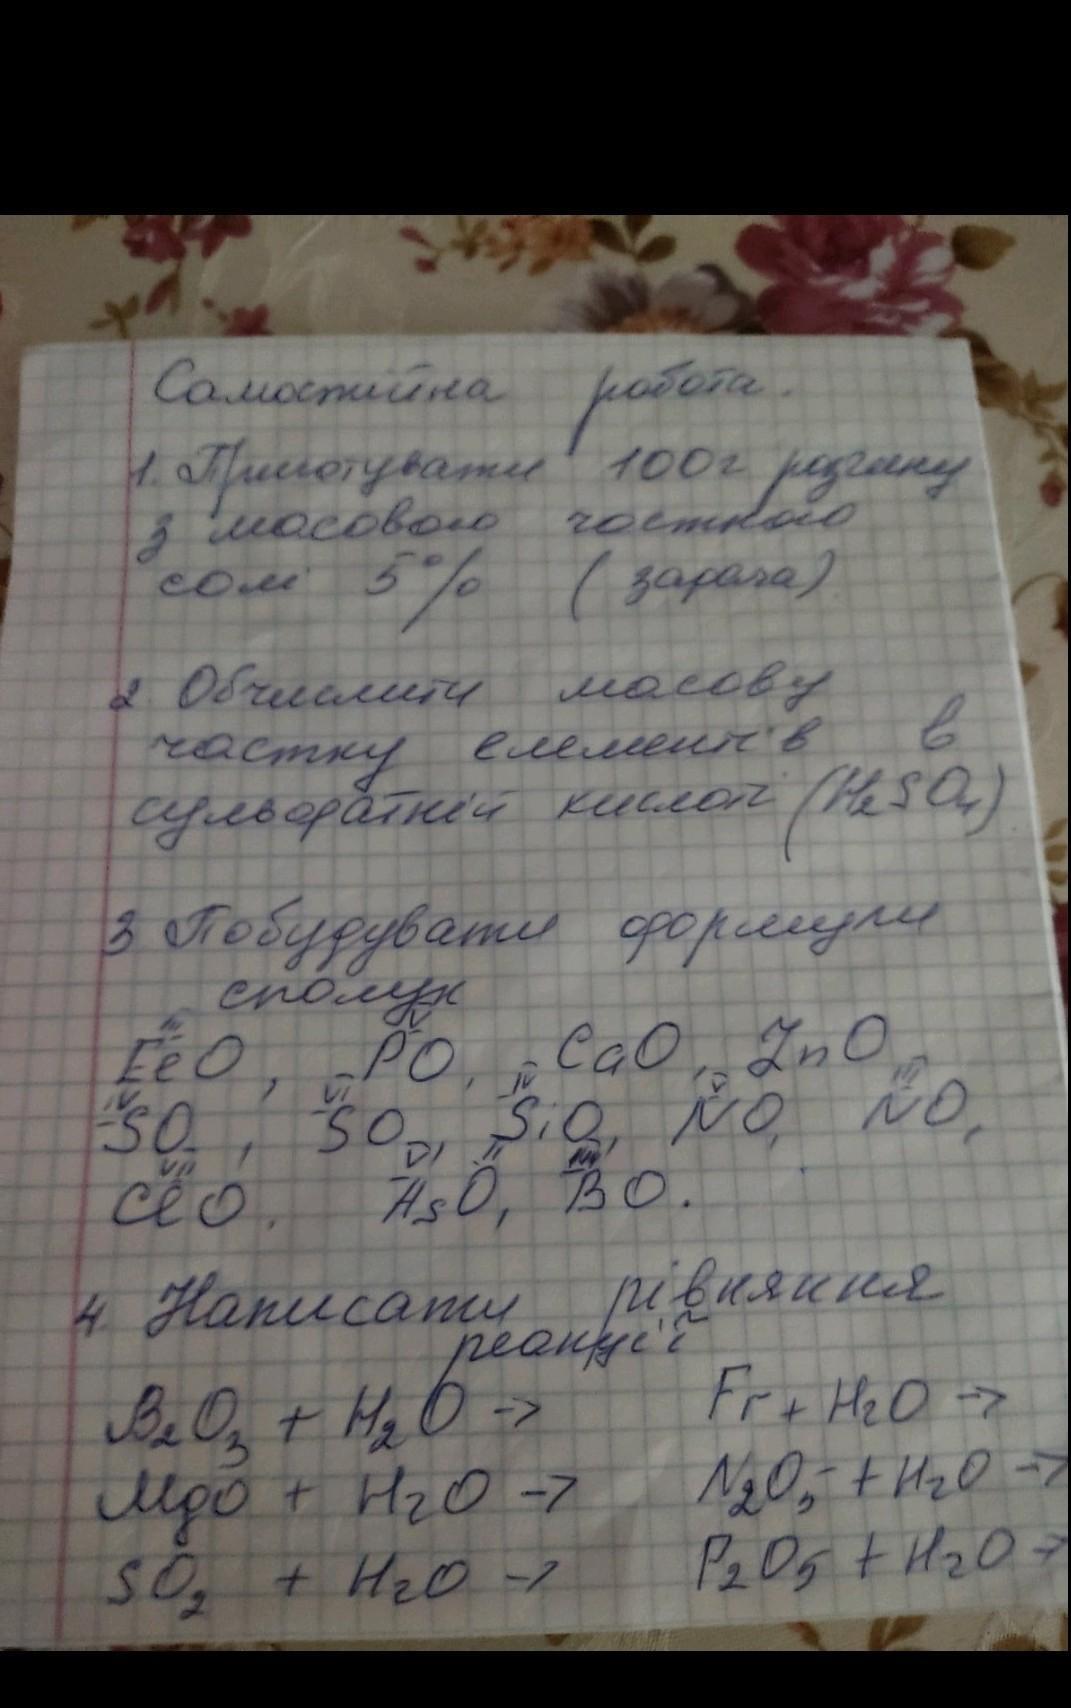 Самостійна робота.
1. Приготувати 100г розчину
з масовою часткою
солі 5% (задача)
2 Обчислити масову
частку елементів в
сульфатній кислоті (H₂SO₄)
3 Побудувати формули
сполук
III V
FeO, PO, CaO, ZnO,
IV VI IV V III
SO, SO, SiO, NO, NO,
VII V II
ClO. AsO, BO.
4. Написати рівняння
реакції
B₂O₃ + H₂O → Fr + H₂O →
MgO + H₂O → N₂O₅ + H₂O →
SO₂ + H₂O → P₂O₅ + H₂O →